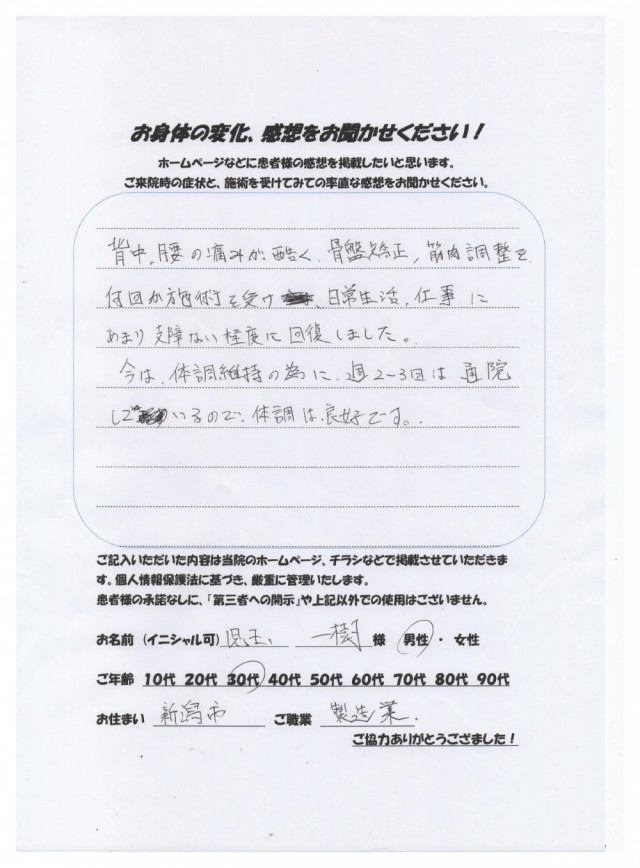 お身体の変化、感想をお聞かせください！
ホームページなどに患者様の感想を掲載したいと思います。
ご来院時の症状と、施術を受けてみての率直な感想をお聞かせください。
背中、腰の痛みが酷く、骨盤矯正、筋肉調整を
何回か施術を受け、日常生活、仕事に
あまり支障ない程度に回復しました。
今は、体調維持の為に、週2~3回は通院
しているので、体調は良好です。
ご記入いただいた内容は当院のホームページ、チラシなどで掲載させていただきま
す。個人情報保護法に基づき、厳重に管理いたします。
患者様の承諾なしに、「第三者への開示」や上記以外での使用はございません。
お名前（イニシャル可）児玉 一樹 様 男性・女性
ご年齢 10代 20代 30代 40代 50代 60代 70代 80代 90代
お住まい 新潟市 ご職業 製造業.
ご協力ありがとうござました！